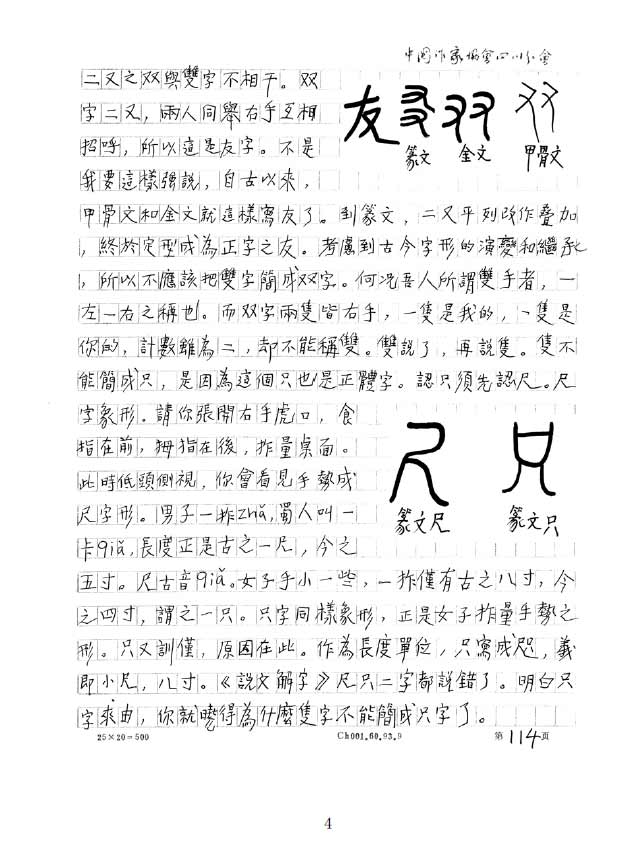 中国作家协会四川分會
二又之双與雙字不相干。双
字二又，兩人同舉右手互相
招呼，所以這是友字。不是
我要這樣強說，自古以來，
友 双
篆文 金文 甲骨文
甲骨文和金文就這樣寫友了。到篆文，二又平列改作疊加
，終於定型成為正字之友。考慮到古今字形的演變和繼承
，所以不應該把雙字簡成双字。何况吾人所謂雙手者，一
左一右之稱也。而双字兩隻皆右手，一隻是我的，一隻是
你的，計數雖為二，却不能稱雙。雙說了，再說隻。隻不
能簡成只，是因為這個只也是正體字。認只須先認尺。尺
字象形。請你張開右手虎口，食
指在前，拇指在後，拃量桌面。
此時低頭側視，你會看見手勢成
尺字形。男子一拃zhǎ，蜀人叫一
卡qiǎ，長度正是古之一尺，今之
篆文尺 篆文只
五寸。尺古音qiǎ。女子手小一些，一拃僅有古之八寸，今
之四寸，謂之一只。只字同樣象形，正是女子拃量手勢之
形。只又訓僅，原因在此。作為長度單位，只寫成咫，義
即小尺，八寸。《說文解字》尺只二字都說錯了。明白只
字來由，你就曉得為什麼隻字不能簡成只字了。
25×20=500 Ch001.60.93.9 第114页
4